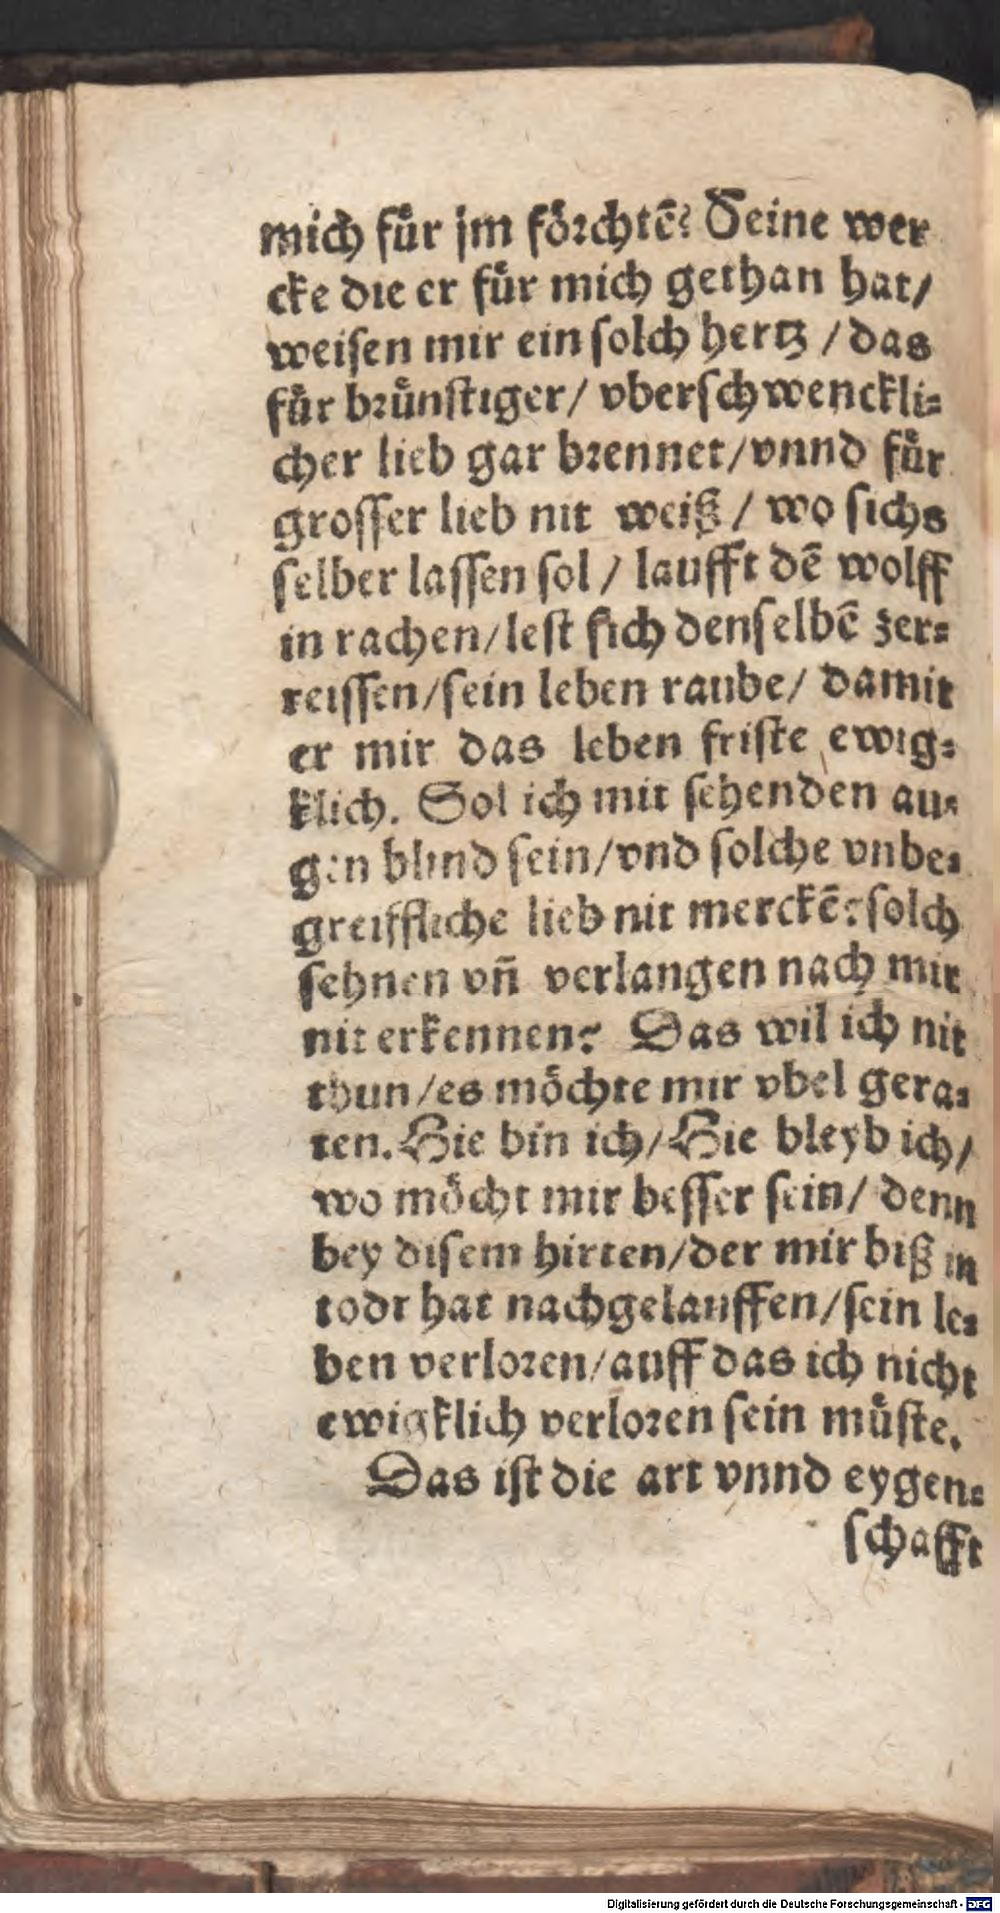 mich fuͤr jm foͤrchtē? Seine wer
cke die er fuͤr mich gethan hat/
weisen mir ein solch hertz / das
fuͤr bruͤnstiger/ vberschwenckli-
cher lieb gar brennet/vnnd fuͤr
grosser lieb nit weiß / wo sichs
selber lassen sol / laufft dē wolff
in rachen/lest sich denselbē zer-
reissen/sein leben raube/ damit
er mir das leben friste ewig-
klich. Sol ich mit sehenden au-
gen blind sein/vnd solche vnbe-
greiffliche lieb nit merckē? solch
sehnen vñ verlangen nach mir
nit erkennen? Das wil ich nit
thun/es moͤchte mir vbel gera-
ten. Hie bin ich/Hie bleyb ich/
wo moͤcht mir besser sein/ denn
bey disem hirten/der mir biß in
todt hat nachgelauffen/sein le-
ben verloren/auff das ich nicht
ewigklich verloren sein muͤste.
Das ist die art vnnd eygen-
schafft
Digitalisierung gefördert durch die Deutsche Forschungsgemeinschaft - DFG